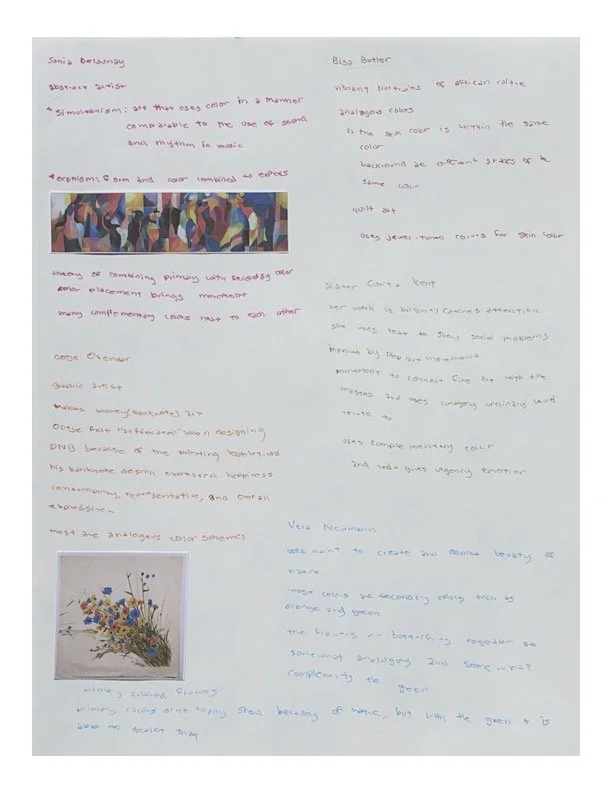 Sonia Delaunay
abstract artist
* Simultanism: art that uses color in a manner
comparable to the use of sound
and rhythm in music
* orphism: form and color combined to express
theory of combining primary with secondary color
color placement brings movement
many complementary colors next to each other
graphic artist
makes money(banknote) art
felt "suffocated" when designing
DNB because of the printing restrictions
his banknote design expressed happiness
contemporary, representative, and overall
expressive.
most are analogous color schemes
Bisa Butler
vibrant portraits of african culture
analogous colors
is the skin color is within the same
color
background are different shades of the
same color
quilt art
uses jewel-toned colors for skin color
Sister Corita Kent
her work is bright/catches attention
she uses text to show social problems
inspired by Pop art movement
movement to connect fine art with the
masses and uses imagery ordinary would
relate to
uses complementary color
and gives urgency emotion
Vera Neumann
uses paint to create and beauty of
nature
most colors are secondary colors such as
orange and green
the flowers butterfly together are
somewhat analogous and somewhat
the green
primary colored flowers
primary colors don't really show because of nature, but with the green it is